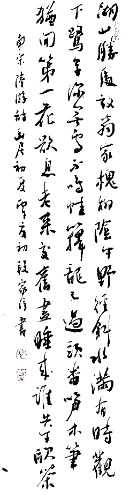 湖山勝處放翁家槐柳陰中野徑斜水滿有時觀
下鷺草深無處不鳴蛙籜龍已過頭番筍木筆
猶開第一花歎息老來交舊盡睡來誰共午甌茶
南宋陸游詩幽居初夏 夏初 書